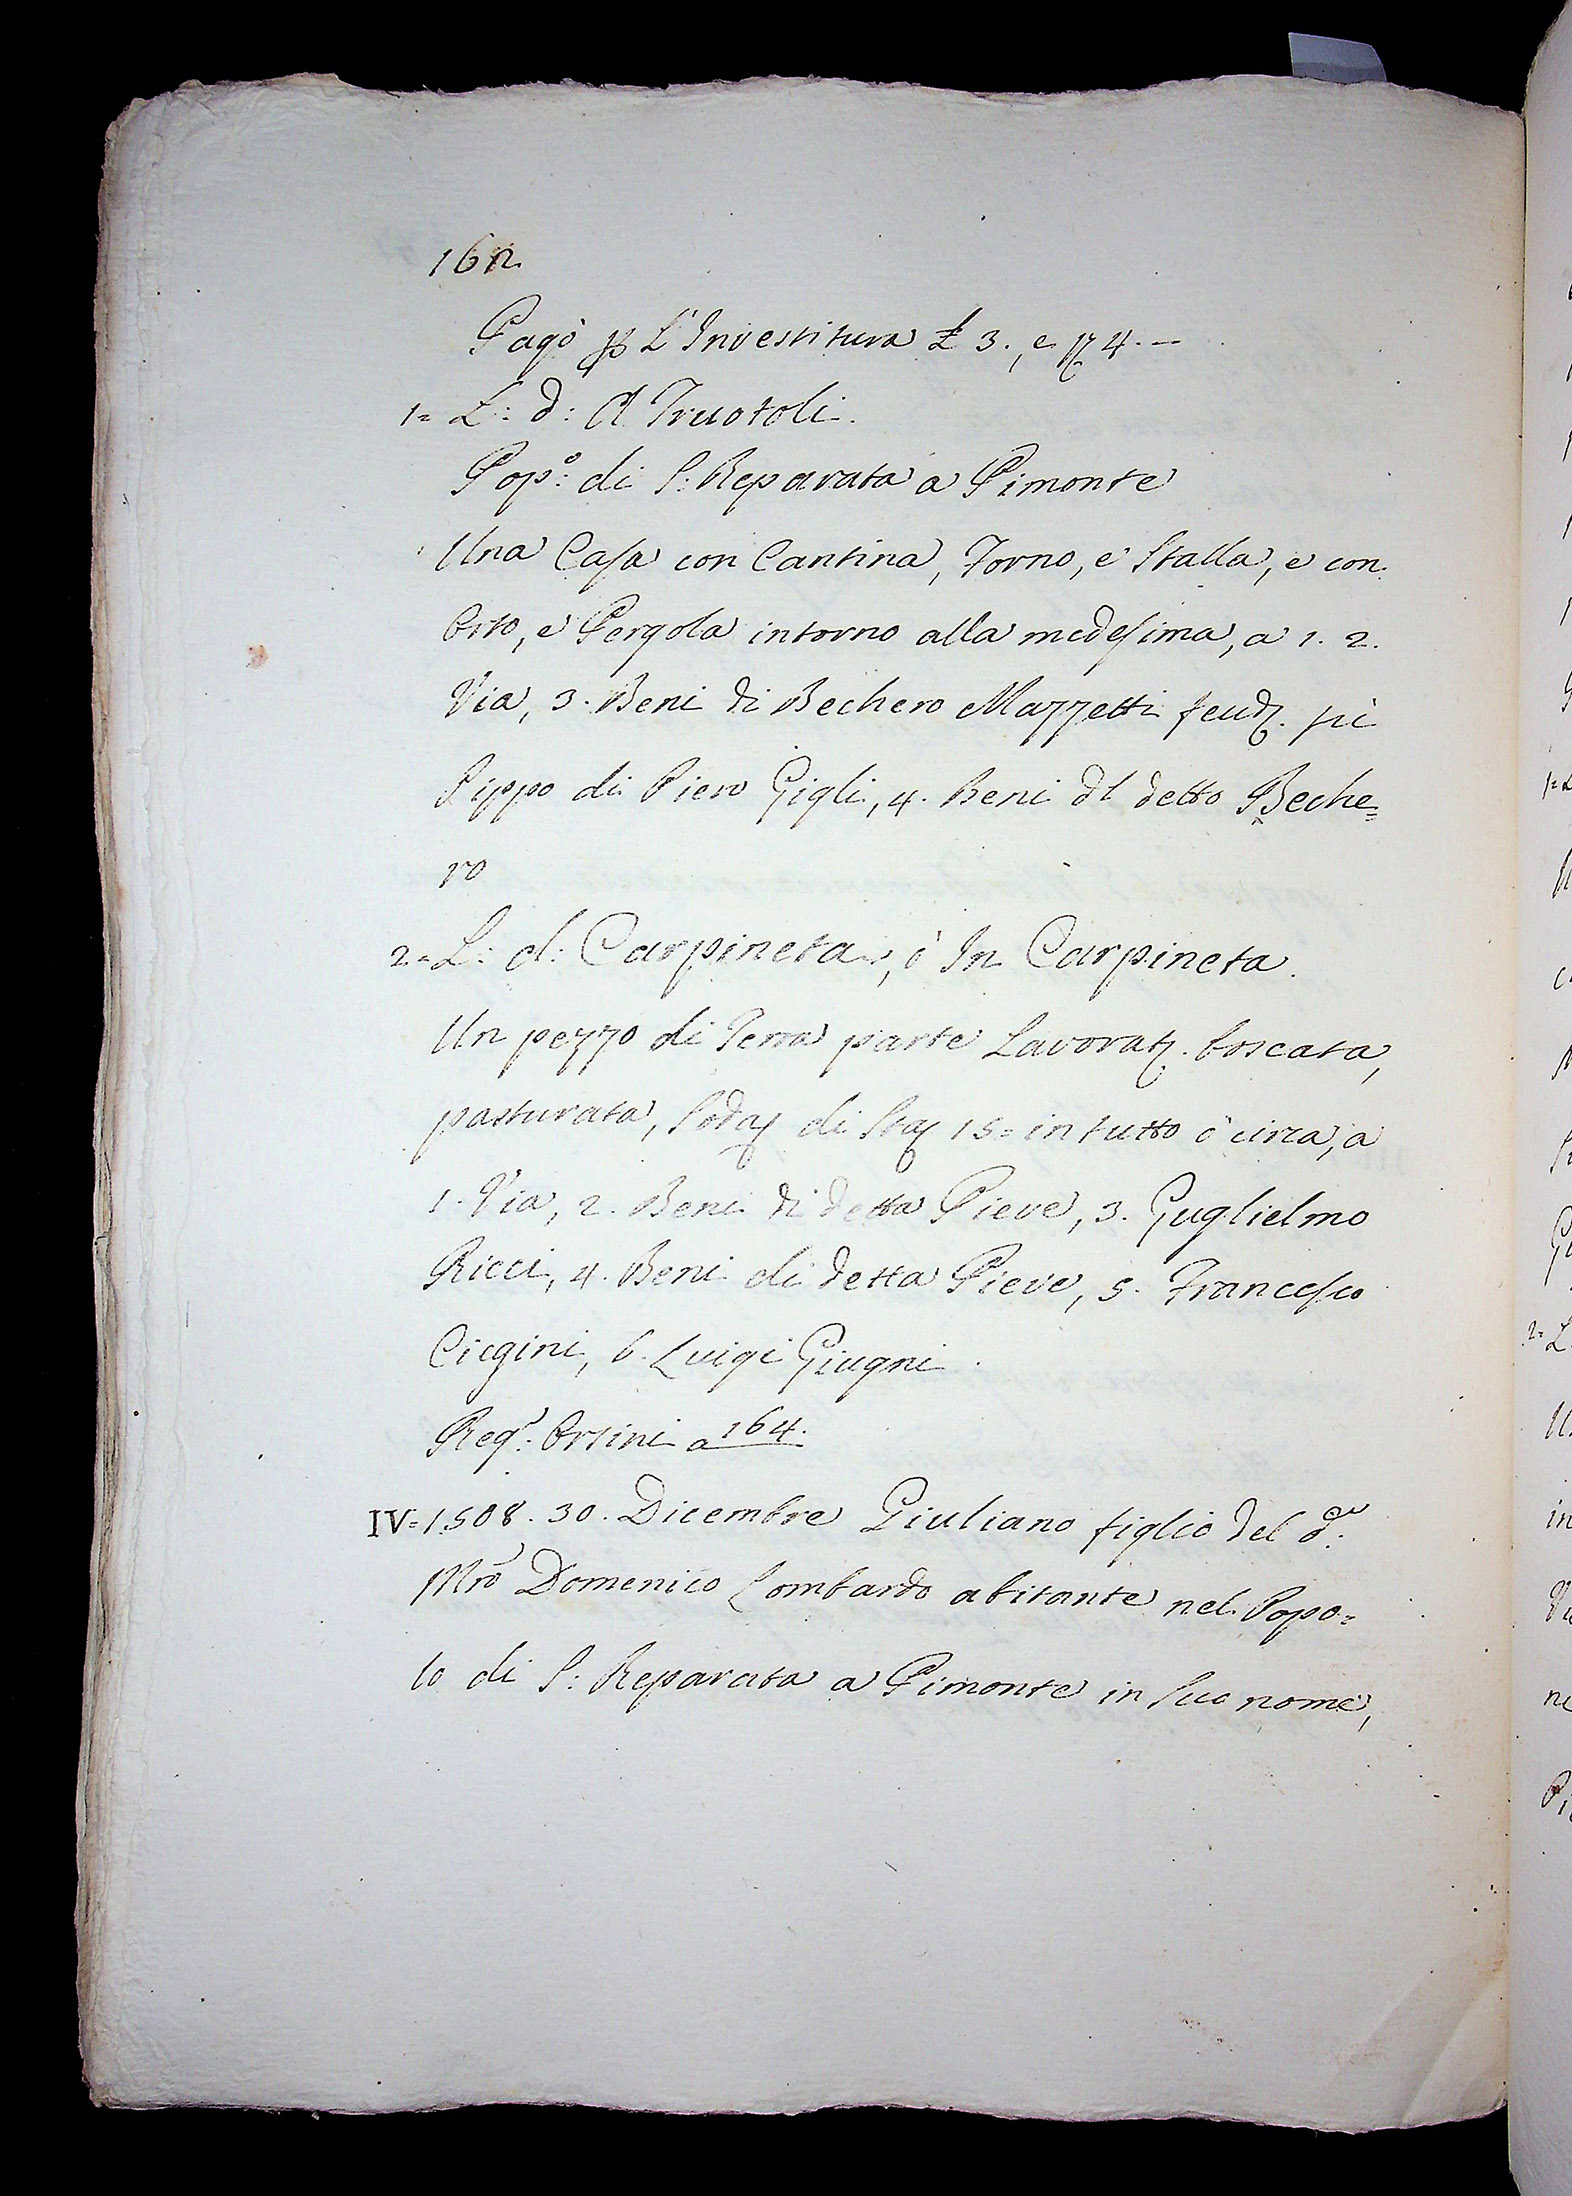 162
Pagò p L'Investitura £ 3., e 4.—
1= L: d: A Truotoli.
Pop.º: di S: Reparata a Pimonte
Una Casa con Cantina, Forno, e Stalla, e con
Orto, e Pergola intorno alla medesima, a 1. 2.
Via, 3. Beni di Bechero Mazzetti feud. pù
Pippo di Piero Gigli, 4. Beni dl detto Beche=
ro
2= L: d: Carpineta, ò In Carpineta.
Un pezzo di Terra parte Lavorat. boscata,
pasturata, Soda di Sta 15= in tutto ò circa, a
1. Via, 2. Beni di detta Pieve, 3. Guglielmo
Ricci, 4. Beni di detta Pieve, 5. Francesco
Cicgini, 6. Luigi Giugni.
Reg.º: Orsini a 164.
IV= 1508. 30. Dicembre Giuliano figlio del d:
Mrõ Domenico Lombardo abitante nel Popo=
lo di S: Reparata a Pimonte in Suo nome,